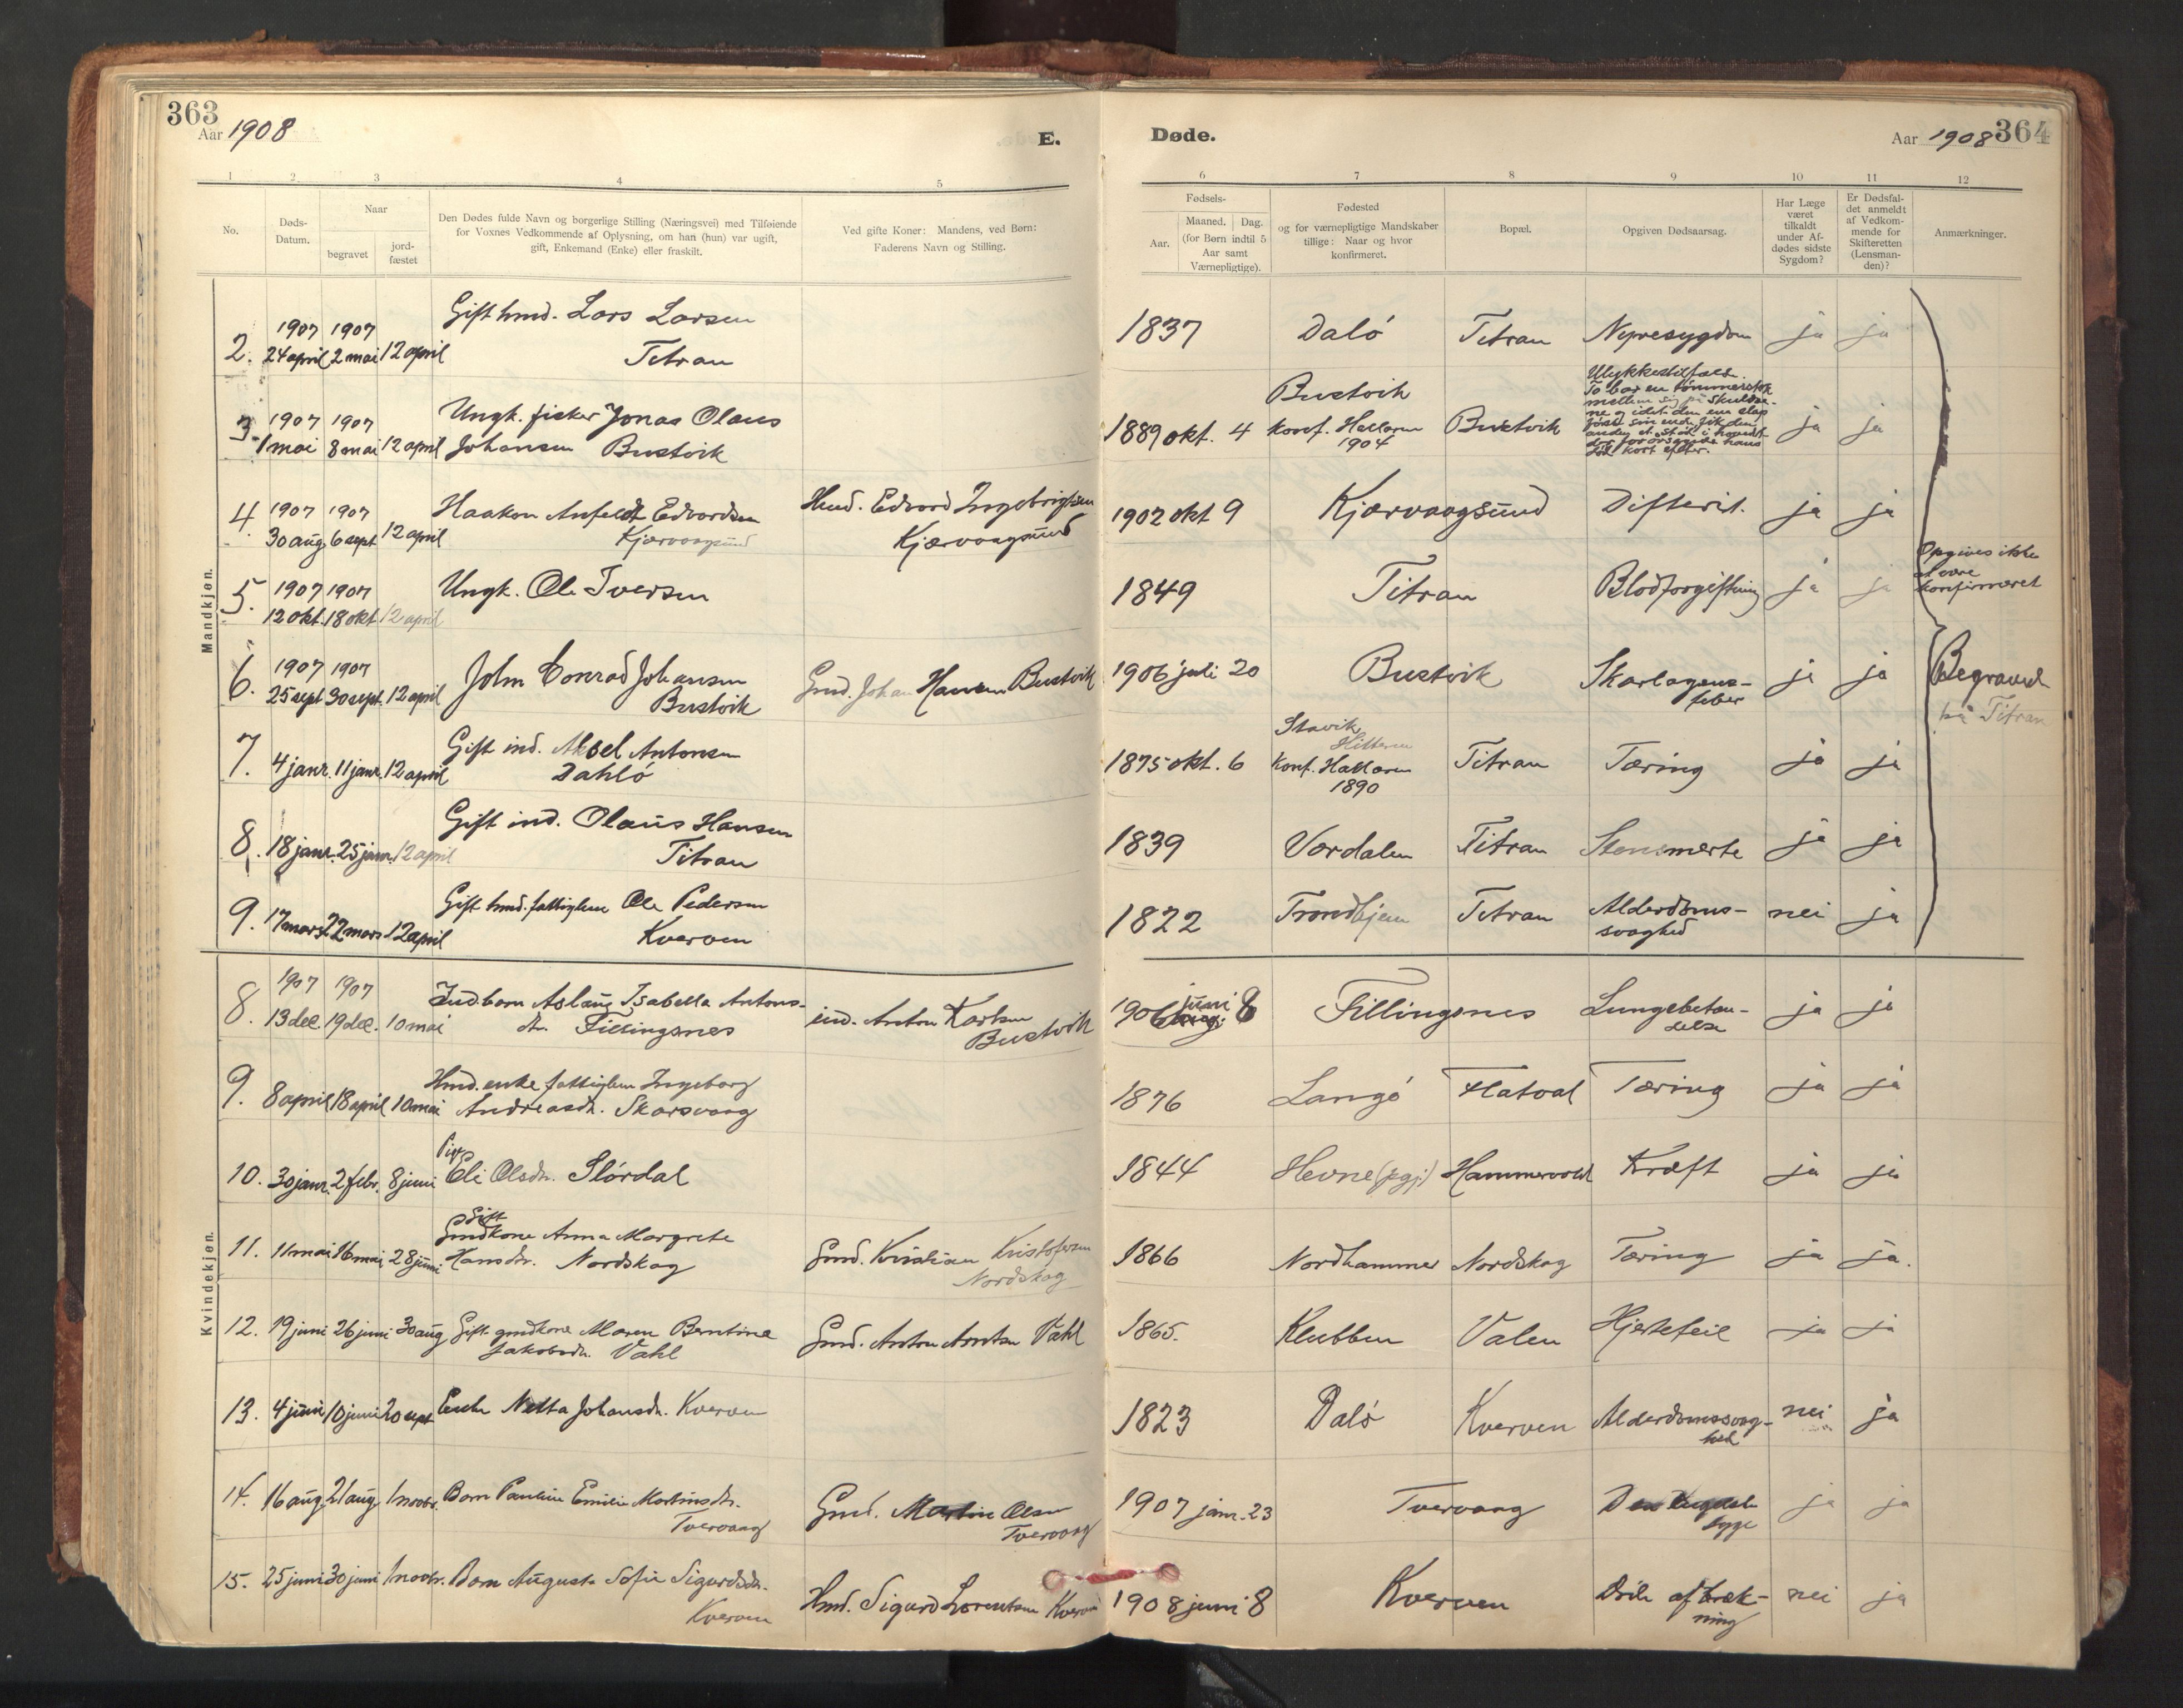 363
Aar 1908
E.
Døde.
Aar 1908
364
1 2 3 4 5 6 7 8 9 10 11 12
No.
Døds-
Datum.
Naar
begravet
jord-
fæstet
Den Dødes fulde Navn og borgerlige Stilling (Næringsvei) med Tilføiende
for Voxnes Vedkommende af Oplysning, om han (hun) var ugift,
gift, Enkemand (Enke) eller fraskilt.
Ved gifte Koner: Mandens, ved Børn:
Faderens Navn og Stilling.
Fødsels-
Aar.
Maaned. Dag.
(for Børn indtil 5
Aar samt
Værnepligtige).
Fødested
og for værnepligtige Mandskaber
tillige: Naar og hvor
konfirmeret.
Bopæl.
Opgiven Dødsaarsag.
Har Læge
været
tilkaldt
under Af-
dødes sidste
Sygdom?
Er Dødsfal-
det anmeldt
af Vedkom-
mende for
Skifteretten
(Lensman-
den)?
Anmærkninger.
Mandkjøn.
2. 1907 24 april 1907 2 mai 12 april
Gift hmd. Lars Larsen
Titran
1837 Daló Titran Nyresygdom ja ja
3. 1907 1 mai 1907 8 mai 12 april
Ungk. fisker Jonas Olaus
Johansen Bustvik
1889 okt. 4
Bustvik
konf. Hallaren
1904
Bustvik
Ulykkestilfælde.
To bar en tømmerstok
mellem sig på skuldre-
ne og idet den ene slap
først sin ende, fik den
anden et stød i hovedet
der forårsagede hans
død kort efter.
ja ja
4. 1907 30 aug 1907 6 sept 12 april
Haakon Anfeldt Edvardsen
Kjærvaagsund
Hmd. Edvard Ingebrigtsen
Kjærvaagsund
1902 okt 9 Kjærvaagsund Difterit. ja ja
5. 1907 12 okt. 1907 18 okt 12 april
Ungk. Ole Iversen
1849 Titran Blodforgiftning ja ja
Opgives ikke
at være
konfirmeret
6. 1907 25 sept 1907 30 sept. 12 april
John Conrad Johansen
Bustvik
Gmd. Johan Hansen Bustvik
1906 juli 20 Bustvik
Skarlagens-
feber
ja ja
Begravet
på Titran
7. 4 janr. 11 janr. 12 april
Gift ind. Aksel Antonsen
Dahló
1875 okt. 6
Stavik
Hitteren
konf. Hallaren
1890
Titran Tæring ja ja
8. 18 janr. 25 janr. 12 april
Gift ind. Olaus Hansen
Titran
1839 Værdalen Titran Stensmerte ja ja
9. 17 mars 22 mars 12 april
Gift hmd. fattiglem Ole Pedersen
Kverven
1822 Trondhjem Titran
Alderdoms-
svaghed
nei ja
Kvindekjøn.
8. 1907 13 dec. 1907 19 dec. 10 mai
Ind. barn Aslaug Isabella Antons-
dtr. Fillingsnes
ind. Anton Karlsen
Bustvik
1906 juni 8 Fillingsnes
Lungebetæn-
delse
ja ja
9. 8 april 18 april 10 mai
Hmd. enke fattiglem Ingeborg
Andreasdtr. Skarsvaag
1876 Langó Flatval Tæring ja ja
10. 30 janr. 2 febr. 8 juni
Pige
Eli Olsdtr. Slórdal
1844 Hevne (prgj.) Hammervold Kræft ja ja
11. 11 mai 16 mai 28 juni
Gift
Gmdkone Anna Margrete
Hansdtr. Nordskag
Gmd. Kristian Kristofersen
Nordskag
1866 Nordhammer Nordskag Tæring ja ja.
12. 19 juni 26 juni 30 aug
Gift gmdkone Maren Berntine
Jakobsdtr. Vahl
Gmd. Anton Arntsen Vahl
1865. Klubben Valen Hjertefeil ja ja
13. 4 juni 10 juni 20 sept
Enke Netta Johansdtr. Kverven
1823 Daló Kverven
Alderdomssvag-
hed
nei ja
14. 16 aug 21 aug 1 novbr.
Barn Pauline Emilie Martinsdtr.
Tvervaag
Gmd. Martin Olsen
Tvervaag
1907 janr. 23 Tvervaag
Den engelske
syge
ja ja
15. 25 juni 30 juni 1 novbr.
Barn Augusta Sofie Sigurdsdtr.
Kverven
Hmd. Sigurd Lorentsen Kverven
1908 juni 8 Kverven
Døde af bræk-
ning
nei ja